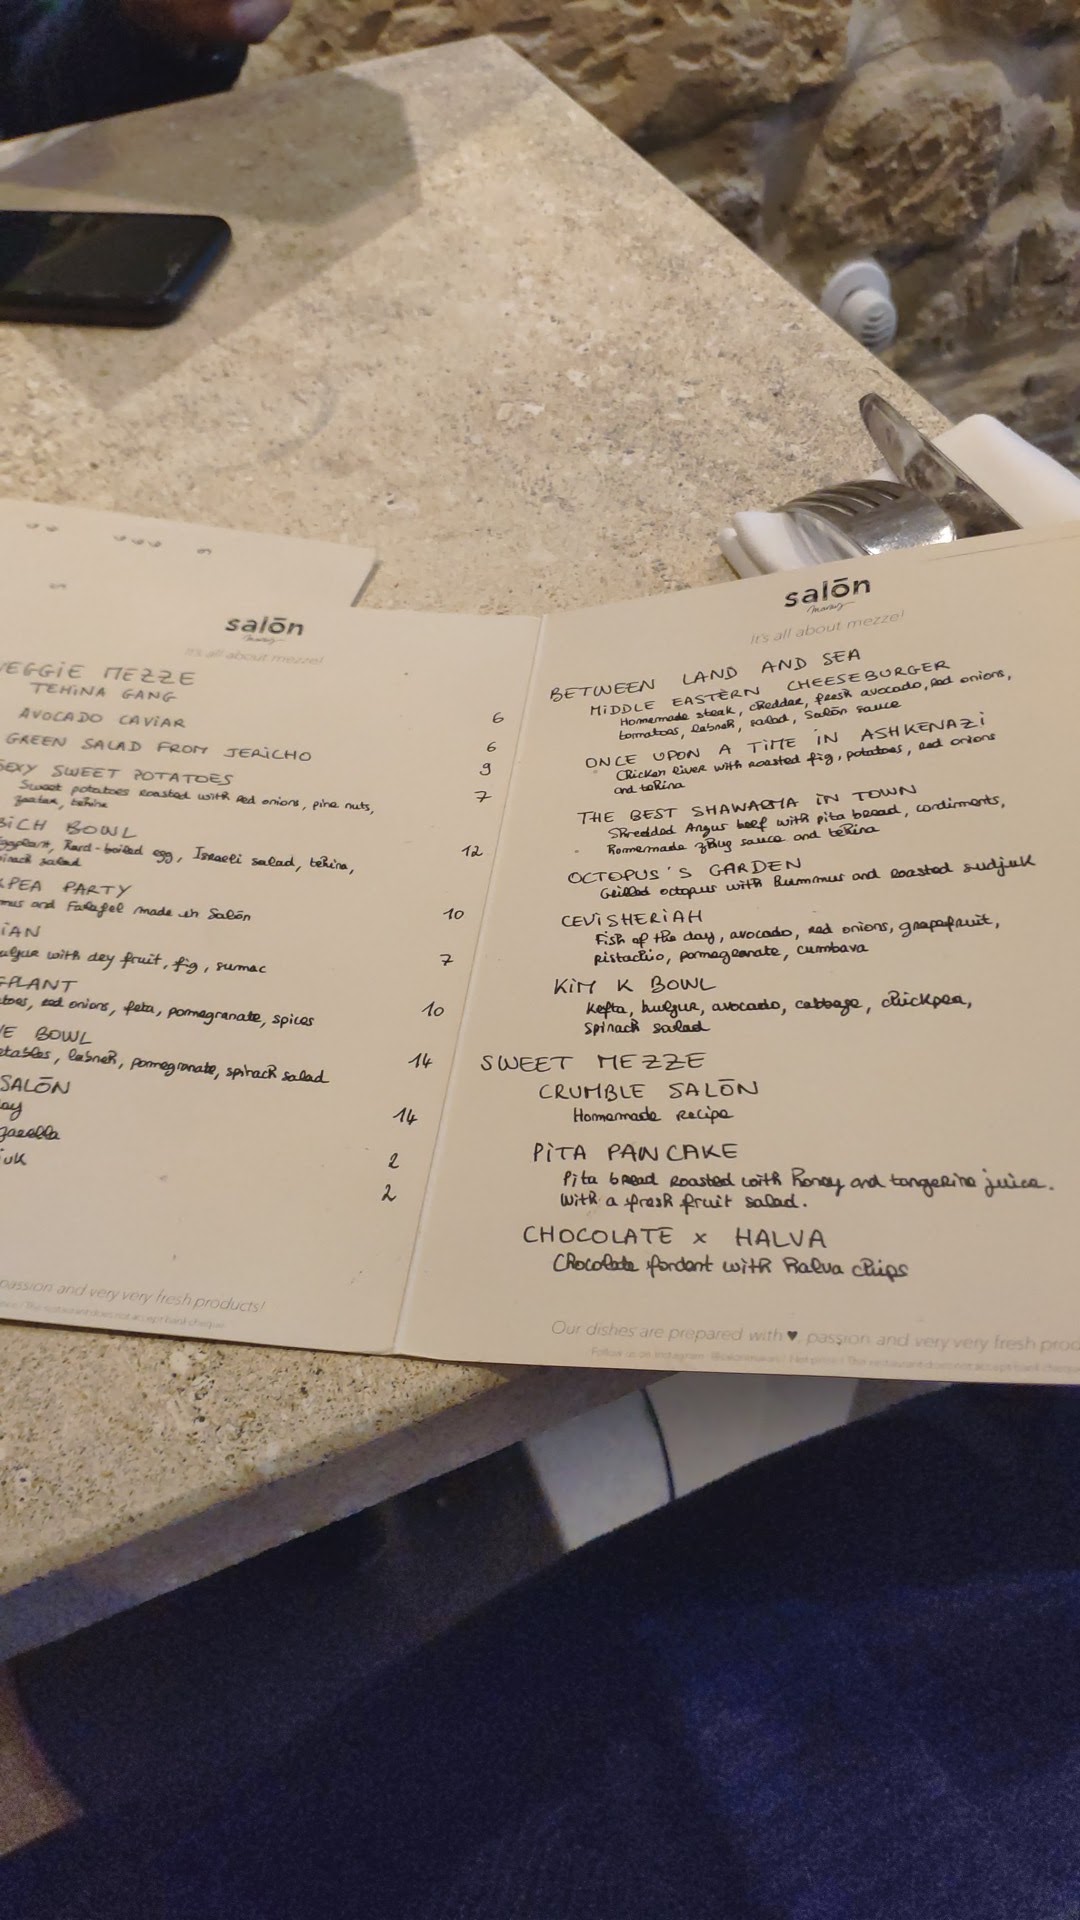 salōn
marais
It's all about mezze!
VEGGIE MEZZE
TEHINA GANG 6
AVOCADO CAVIAR 6
GREEN SALAD FROM JERICHO 9
SEXY SWEET POTATOES 7
Sweet potatoes roasted with red onions, pine nuts,
zaatar, tehina
BICH BOWL 12
Eggplant, Hard-boiled egg, Israeli salad, tehina,
spinach salad
KPEA PARTY 10
mus and Falafel made in Salōn
IAN 7
ulgur with dry fruit, fig, sumac
GPLANT 10
atoes, red onions, feta, pomegranate, spices
VE BOWL 14
etables, labneh, pomegranate, spinach salad
SALŌN 14
ay
zarella 2
juk 2
passion and very very fresh products!
The restaurant does not accept bank cheque
salōn
marais
It's all about mezze!
BETWEEN LAND AND SEA
MIDDLE EASTERN CHEESEBURGER
Homemade steak, cheddar, fresh avocado, red onions,
tomatoes, labneh, salad, Salōn sauce
ONCE UPON A TIME IN ASHKENAZI
Chicken liver with roasted fig, potatoes, red onions
and tehina
THE BEST SHAWARMA IN TOWN
Shredded Angus beef with pita bread, condiments,
Homemade zhug sauce and tehina
OCTOPUS'S GARDEN
Grilled octopus with Hummus and roasted sudjuk
CEVISHERIAH
Fish of the day, avocado, red onions, grapefruit,
pistachio, pomegranate, cumbava
KIM K BOWL
Kefta, bulgur, avocado, cabbage, chickpea,
spinach salad
SWEET MEZZE
CRUMBLE SALŌN
Homemade recipe
PITA PANCAKE
Pita bread roasted with honey and tangerine juice.
With a fresh fruit salad.
CHOCOLATE x HALVA
Chocolate fondant with halva chips
Our dishes are prepared with ♥ passion and very very fresh prod
Follow us on Instagram Net price! The restaurant does not accept bank cheque